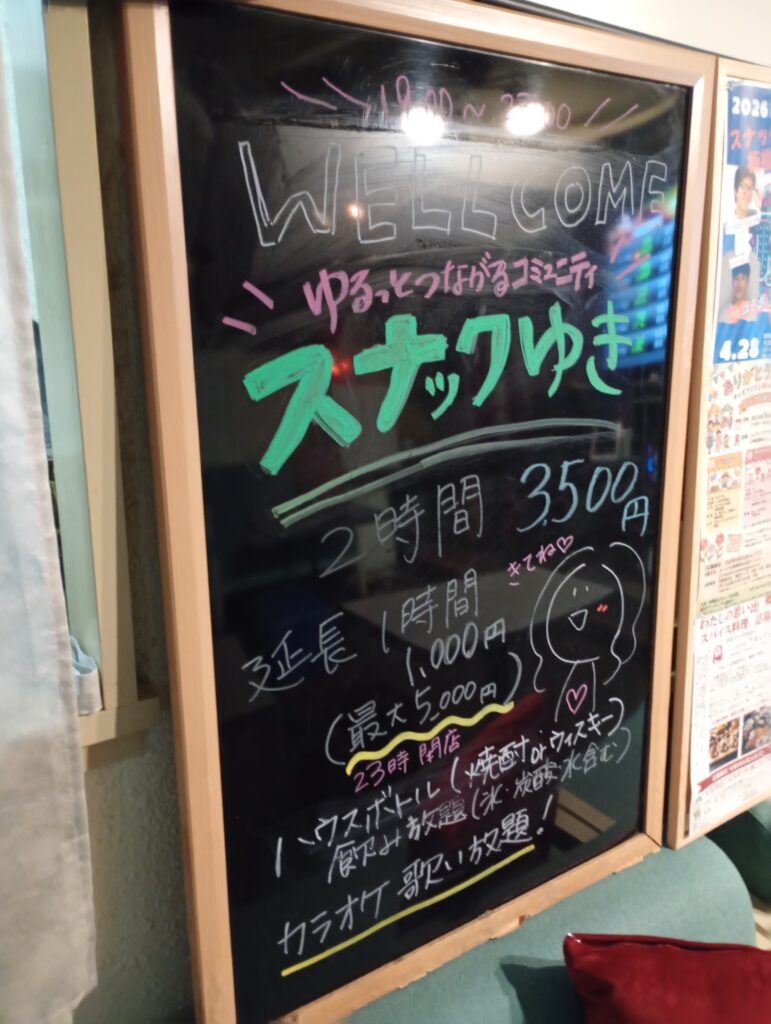 19:00～23:00
WELLCOME
ゆるっとつながるコミュニティ
スナックゆき
2時間 3,500円
きてね♡
延長 1時間
1,000円
(最大5,000円)
23時閉店
ハウスボトル(焼酎orウィスキー)
飲み放題(氷・炭酸・水含む)
カラオケ 歌い放題!
2026
スナッ
4.28
ありがとう
わたしの思い出
スパイス料理